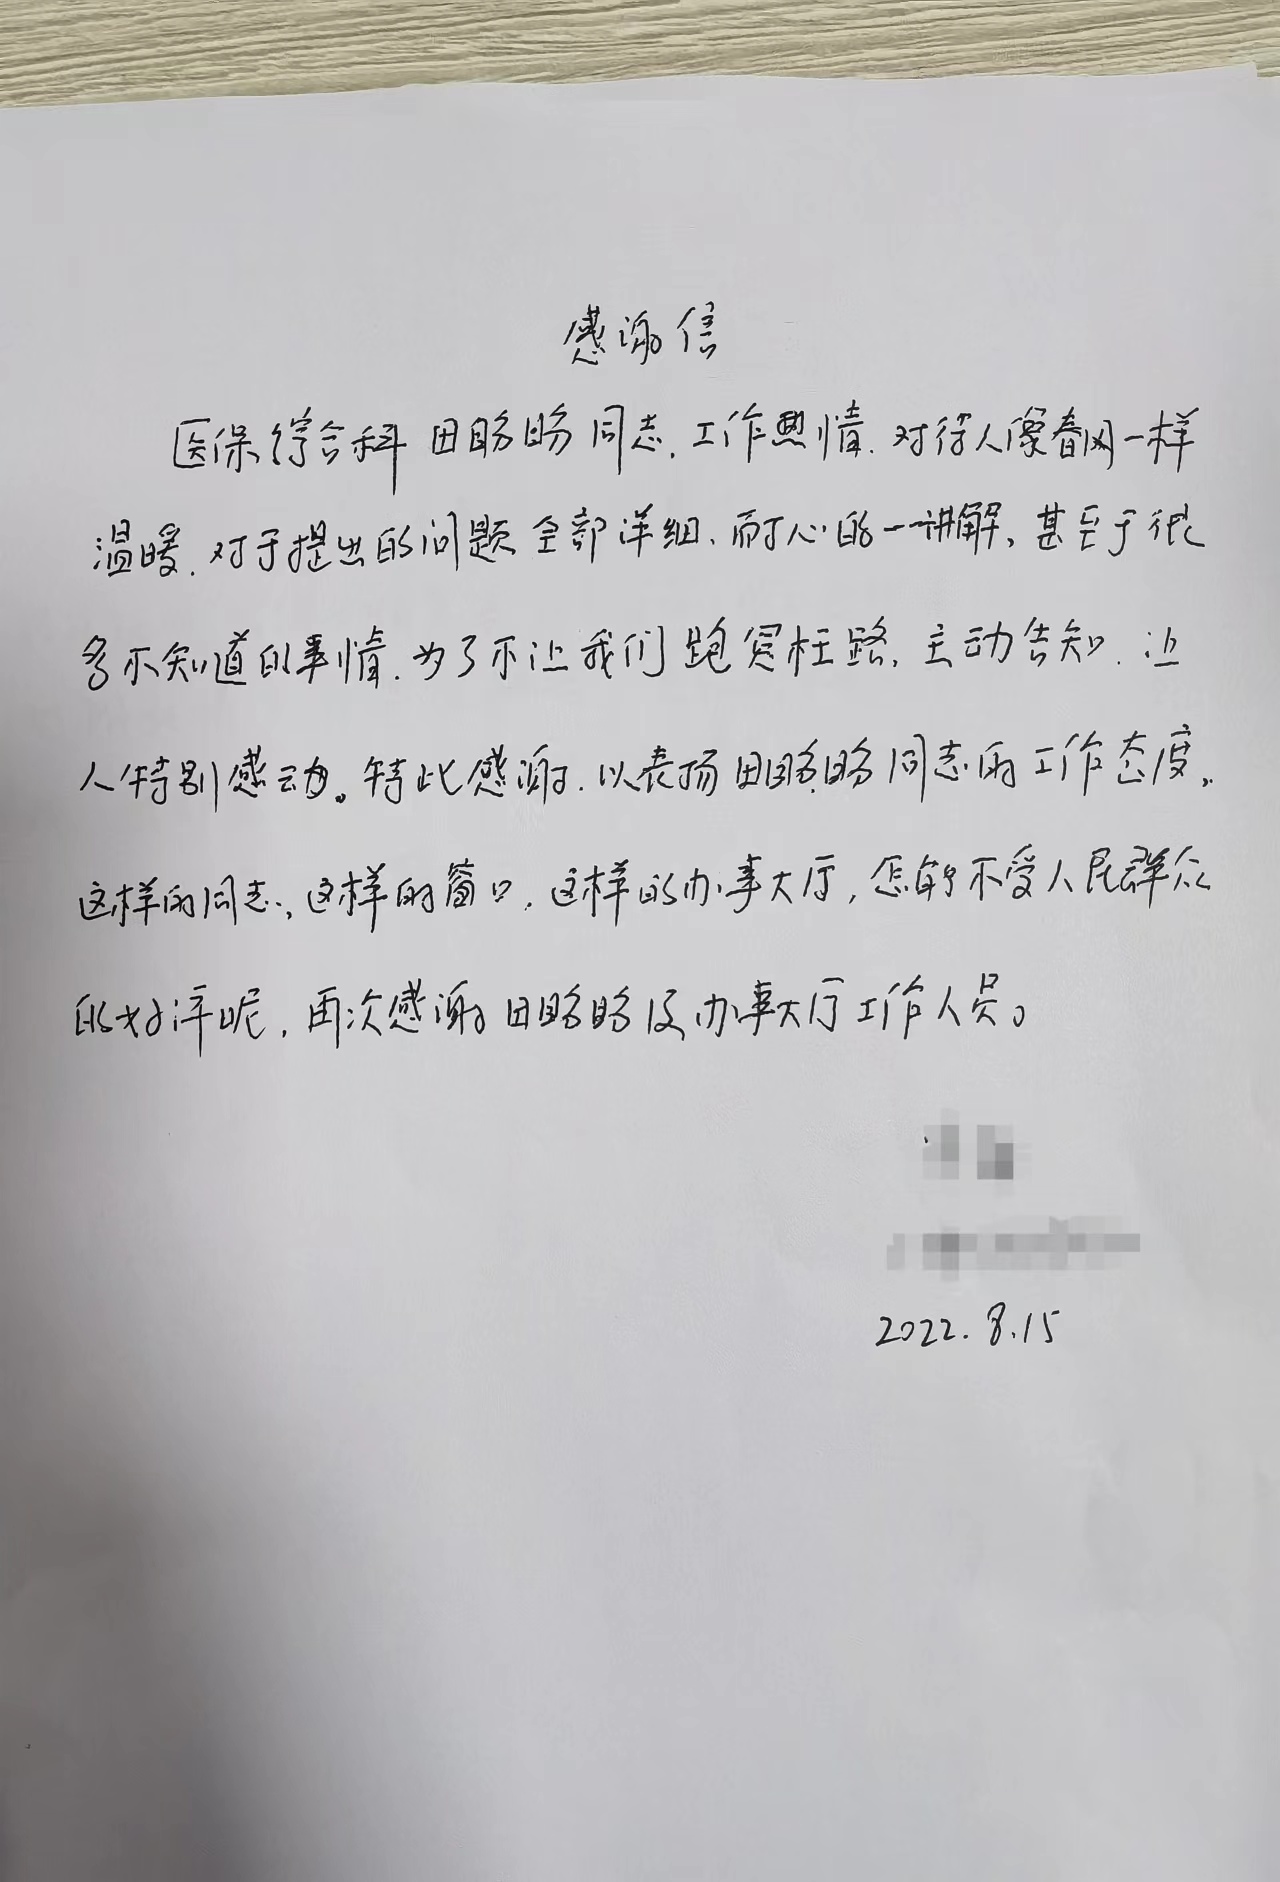 感谢信
医保综合科田盼盼同志,工作热情,对待人像春风一样
温暖,对于提出的问题全部详细、耐心的一一讲解,甚至于很
多不知道的事情,为了不让我们跑冤枉路,主动告知,让
人特别感动。特此感谢,以表扬田盼盼同志的工作态度。
这样的同志,这样的窗口,这样的办事大厅,怎能不受人民群众
的好评呢,再次感谢田盼盼及办事大厅工作人员。
2022.8.15